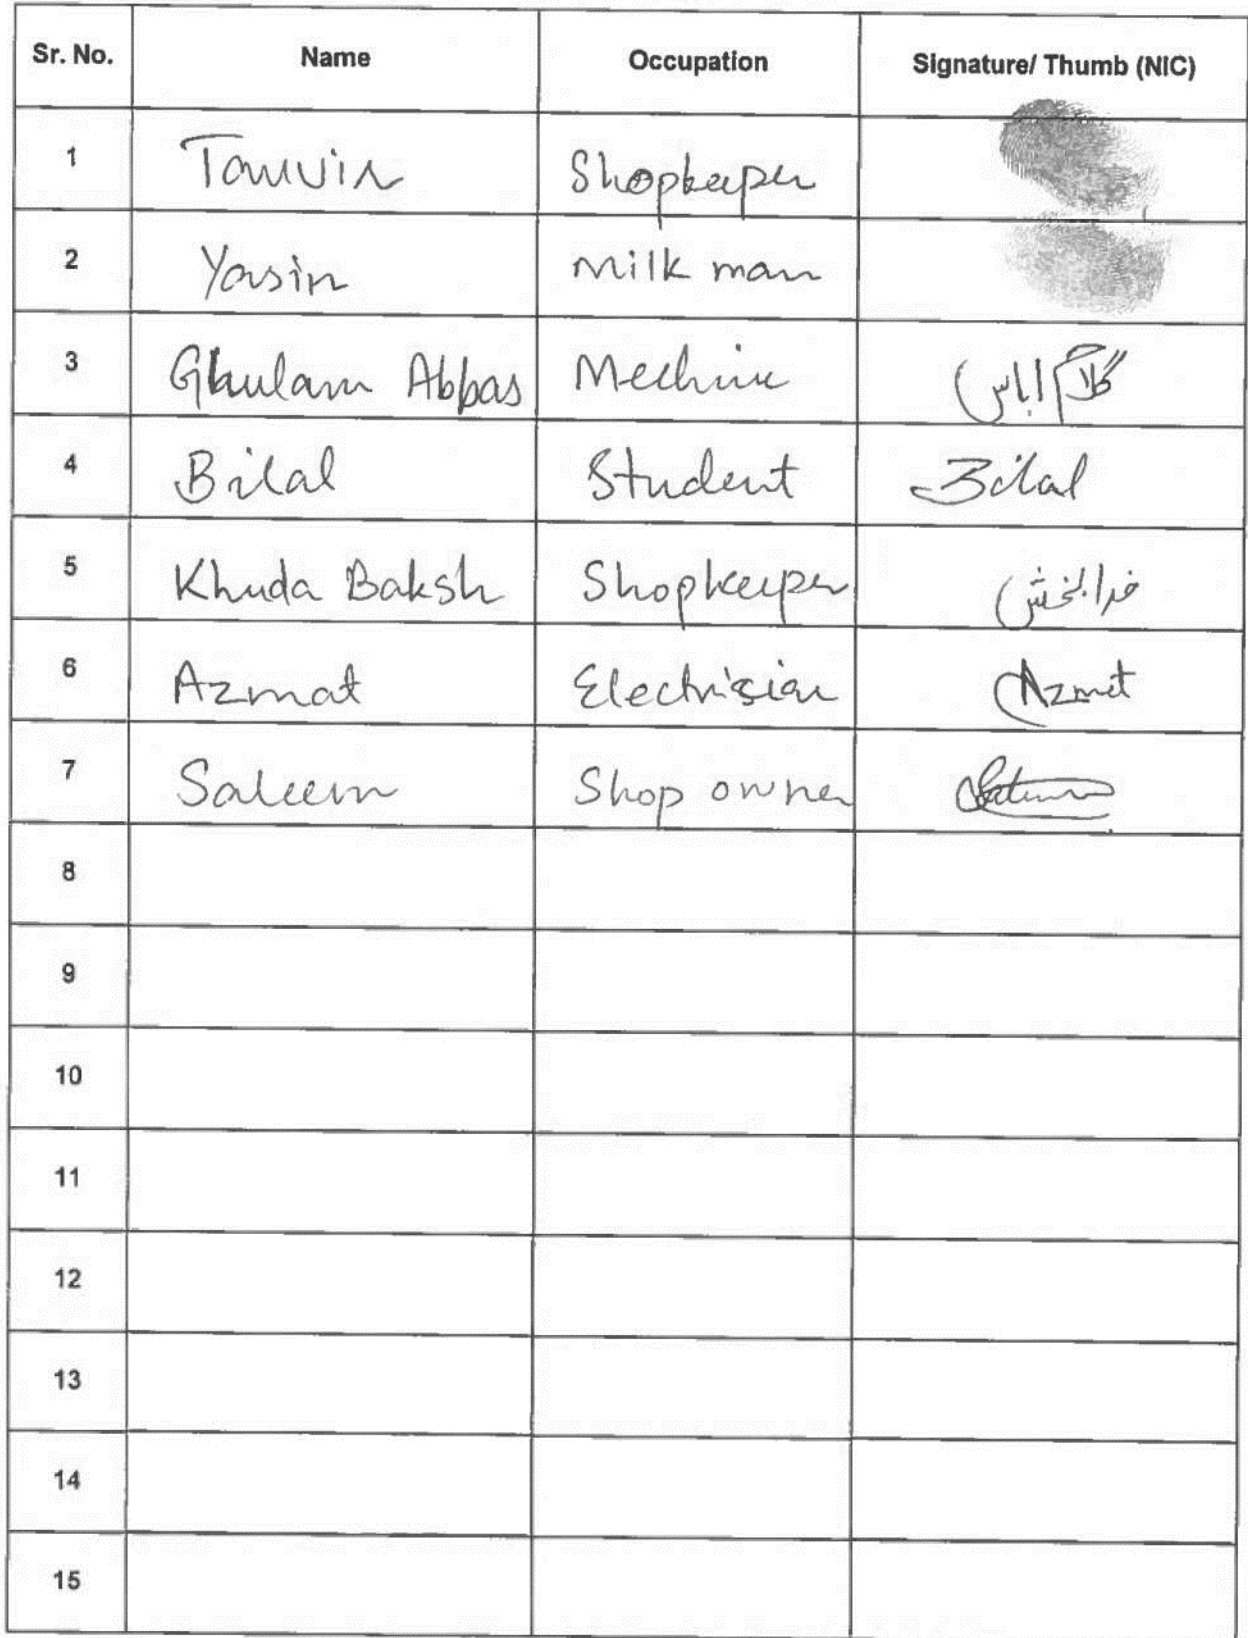 Sr. No. Name Occupation Signature/ Thumb (NIC)
1 Tanvir Shopkeeper
2 Yasin Milk man
3 Ghulam Abbas Mechnic گلام اباس
4 Bilal Student Bilal
5 Khuda Baksh Shopkeeper خدا بخش
6 Azmat Electrisian Azmat
7 Saleem Shop owner Saleem
8
9
10
11
12
13
14
15